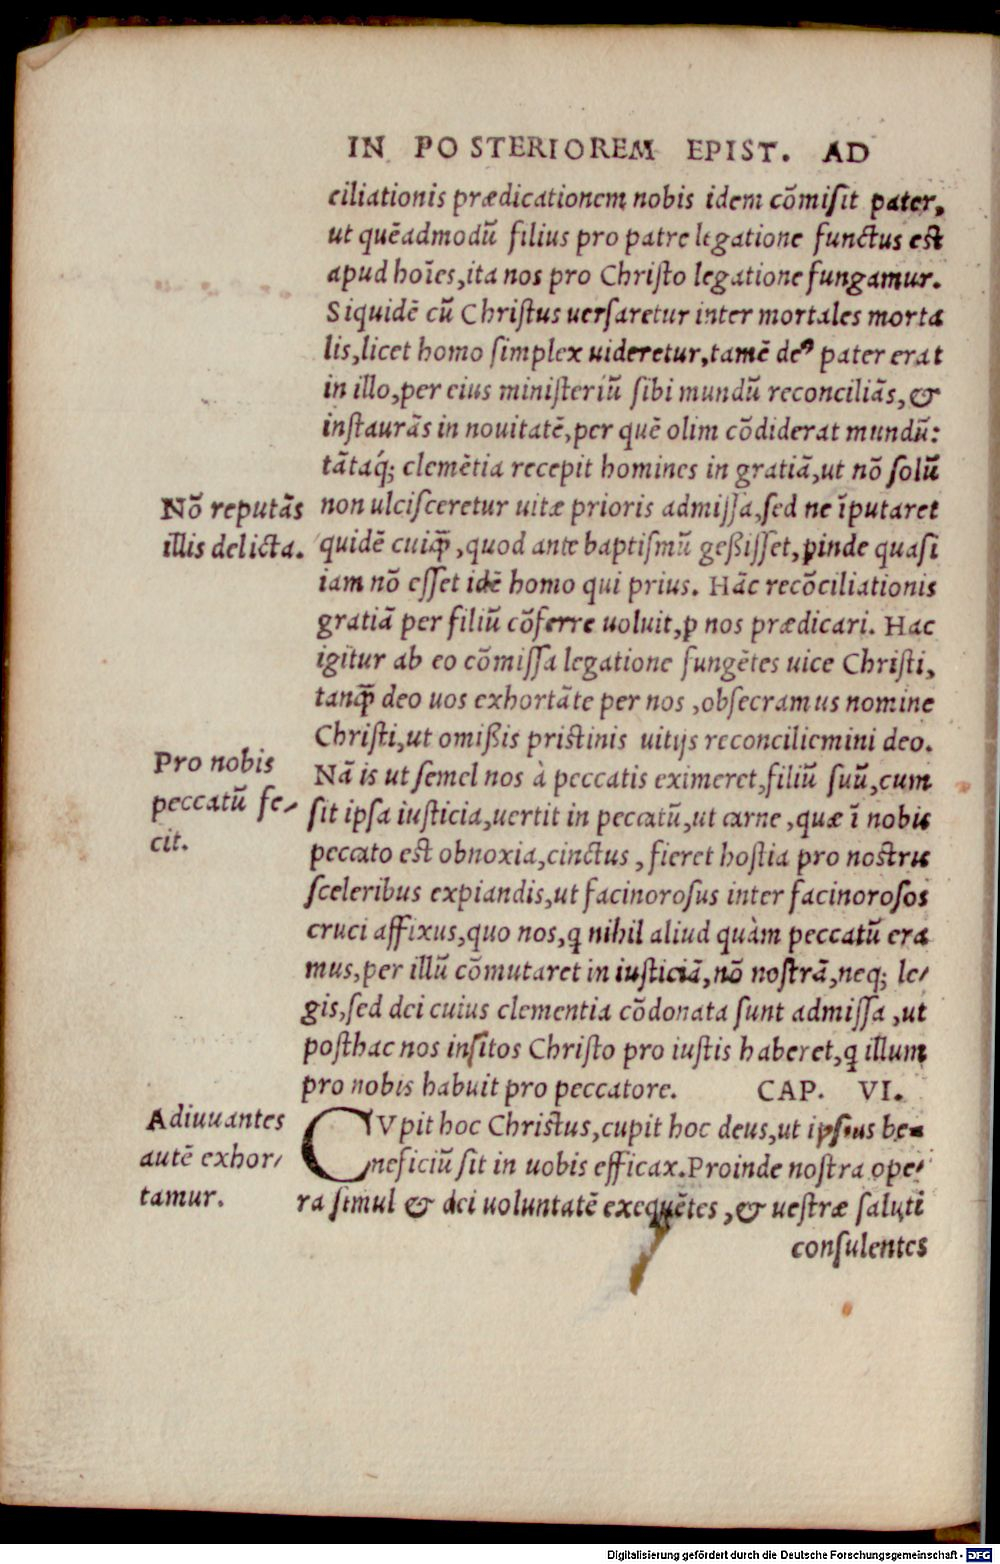 IN POSTERIOREM EPIST. AD
ciliationis prædicationem nobis idem cōmiſit pater,
ut quēadmodū filius pro patre legatione functus est
apud hoīes, ita nos pro Chriſto legatione fungamur.
Siquidē cū Chriſtus uerſaretur inter mortales morta
lis, licet homo ſimplex uideretur, tamē deꝰ pater erat
in illo, per eius miniſteriū ſibi mundū reconciliās, &
inſtaurās in nouitatē, per quē olim cōdiderat mundū:
tātaq́; clemētia recepit homines in gratiā, ut nō ſolū
Nō reputās
illis delicta.
non ulciſceretur uitæ prioris admiſſa, ſed ne īputaret
quidē cuiꝙ̄, quod ante baptiſmū geßiſſet, ꝓinde quaſi
iam nō eſſet idē homo qui prius. Hāc recōciliationis
gratiā per filiū cōferre uoluit, ꝑ nos prædicari. Hac
igitur ab eo cōmiſſa legatione fungētes uice Chriſti,
tanꝙ̄ deo uos exhortāte per nos, obſecramus nomine
Chriſti, ut omißis pristinis uitijs reconciliemini deo.
Pro nobis
peccatū fe-
cit.
Nā is ut ſemel nos à peccatis eximeret, filiū ſuū, cum
ſit ipſa iuſticia, uertit in peccatū, ut carne, quæ ī nobis
peccato est obnoxia, cinctus, fieret hoſtia pro nostris
ſceleribus expiandis, ut facinoroſus inter facinoroſos
cruci affixus, quo nos, q̄ nihil aliud quàm peccatū era
mus, per illū cōmutaret in iuſticiā, nō noſtrā, neq; le-
gis, ſed dei cuius clementia cōdonata ſunt admiſſa, ut
poſthac nos inſitos Chriſto pro iuſtis haberet, q̄ illum
pro nobis habuit pro peccatore. CAP. VI.
Adiuuantes
autē exhor-
tamur.
CVpit hoc Chriſtus, cupit hoc deus, ut ipſius be-
neficiū ſit in uobis efficax. Proinde noſtra ope-
ra ſimul & dei uoluntatē exequētes, & ueſtræ ſaluti
conſulentes
Digitalisierung gefördert durch die Deutsche Forschungsgemeinschaft - DFG